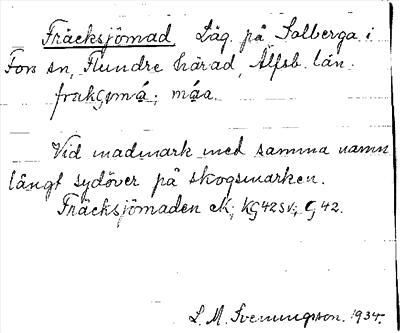 Fräcksjömad Läg. på Solberga i
Fors sn, Flundre härad, Älfsb. län.
måa.
Vid madmark med samma namn
långt sydöver på skogsmarken.
Fräcksjömaden ek; KG42SV; G42.
L. M. Svenungsson. 1934.